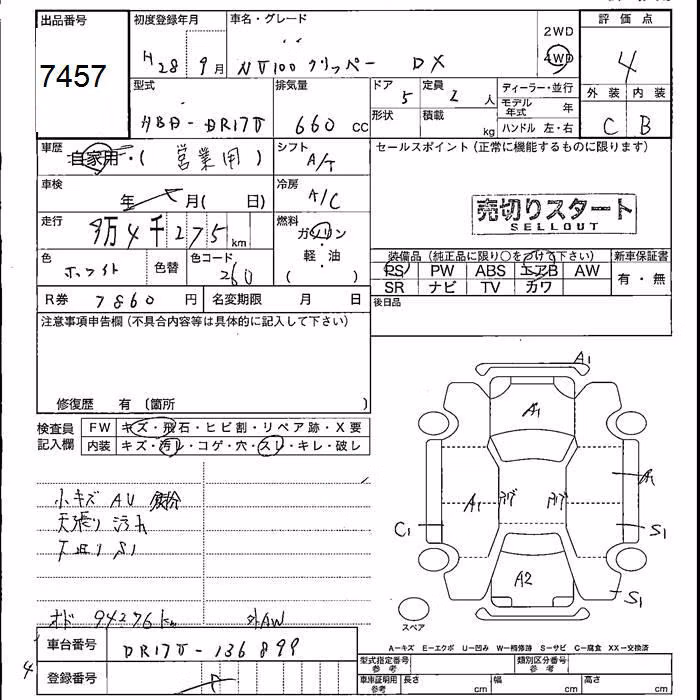 出品番号
7457
初度登録年月
H28 9月
車名・グレード
NV100 クリッパー DX
2WD
4WD
評価点
4
外装 内装
C B
型式
HBD-DR17V
排気量
660 cc
ドア
5
定員
2 人
形状
積載
kg
ディーラー・並行
モデル年式 年
ハンドル 左・右
車歴
自家用・( 営業用 )
シフト
A/T
セールスポイント(正常に機能するものに限ります)
売切りスタート
SELLOUT
車検
年 月( 日)
冷房
A/C
走行
9万4千275 km
燃料
ガソリン
・
軽・油
( )
色
ホワイト
色替
色コード
260
装備品(純正品に限り○をつけて下さい)
PS PW ABS エアB AW
SR ナビ TV カワ
新車保証書
有・無
R券 7860円
名変期限 月 日
後日品
注意事項申告欄(不具合内容等は具体的に記入して下さい)
修復歴 有〔箇所 〕
検査員記入欄
FW キズ・飛石・ヒビ割・リペア跡・X要
内装 キズ・汚レ・コゲ・穴・スレ・キレ・破レ
小キズ AU 鉄粉
天張り 汚れ
下回り S1
オド 94276km 外AW
A1
A1
A1
A1
C1
S1
A2
S1
スペア
A-キズ E-エクボ U-凹み W-補修跡 S-サビ C-腐食 XX-交換済
車台番号
DR17V-136899
4
登録番号
型式指定番号 参考
類別区分番号 参考
車庫証明用 参考
長さ cm
幅 cm
高さ cm